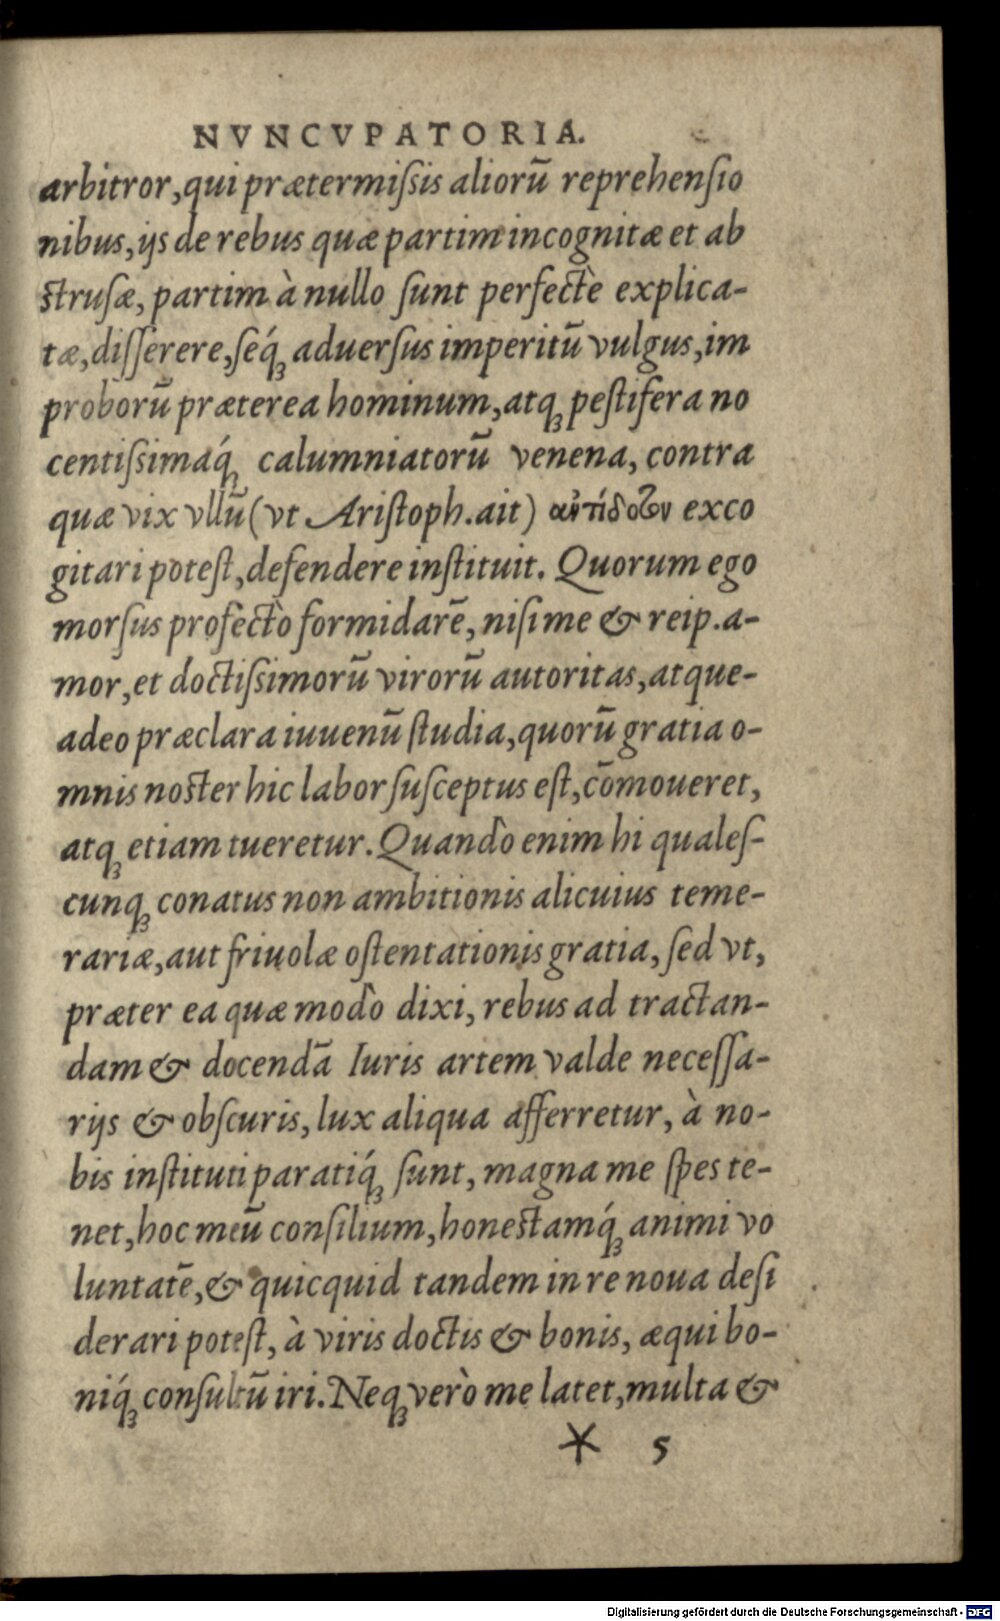 NVNCVPATORIA.
arbitror, qui prætermiſsis aliorũ reprehenſio
nibus, ijs de rebus quæ partim incognitæ et ab
ſtruſæ, partim à nullo ſunt perfectè explica-
tæ, diſſerere, ſéq́ꝫ aduerſus imperitũ vulgus, im
proborũ præterea hominum, atqꝫ peſtifera no
centiſsimaq́ꝫ calumniatorũ venena, contra
quæ vix vllũ (vt Ariſtoph. ait) ἀντίδοτον exco
gitari poteſt, defendere inſtituit. Quorum ego
morſus profectò formidarẽ, niſi me & reip. a-
mor, et doctiſsimorũ virorũ autoritas, atque-
adeo præclara iuuenũ ſtudia, quorũ gratia o-
mnis noſter hic labor ſuſceptus eſt, cõmoueret,
atqꝫ etiam tueretur. Quandò enim hi qualeſ-
cunqꝫ conatus non ambitionis alicuius teme-
rariæ, aut friuolæ oſtentationis gratia, ſed vt,
præter ea quæ modò dixi, rebus ad tractan-
dam & docendã Iuris artem valde neceſſa-
rijs & obſcuris, lux aliqua afferretur, à no-
bis inſtituti paratiq́ꝫ ſunt, magna me ſpes te-
net, hoc meũ conſilium, honeſtamq́ꝫ animi vo
luntatẽ, & quicquid tandem in re noua deſi
derari poteſt, à viris doctis & bonis, æqui bo-
niq́ꝫ conſultũ iri. Neqꝫ verò me latet, multa &
* 5
Digitalisierung gefördert durch die Deutsche Forschungsgemeinschaft - DFG